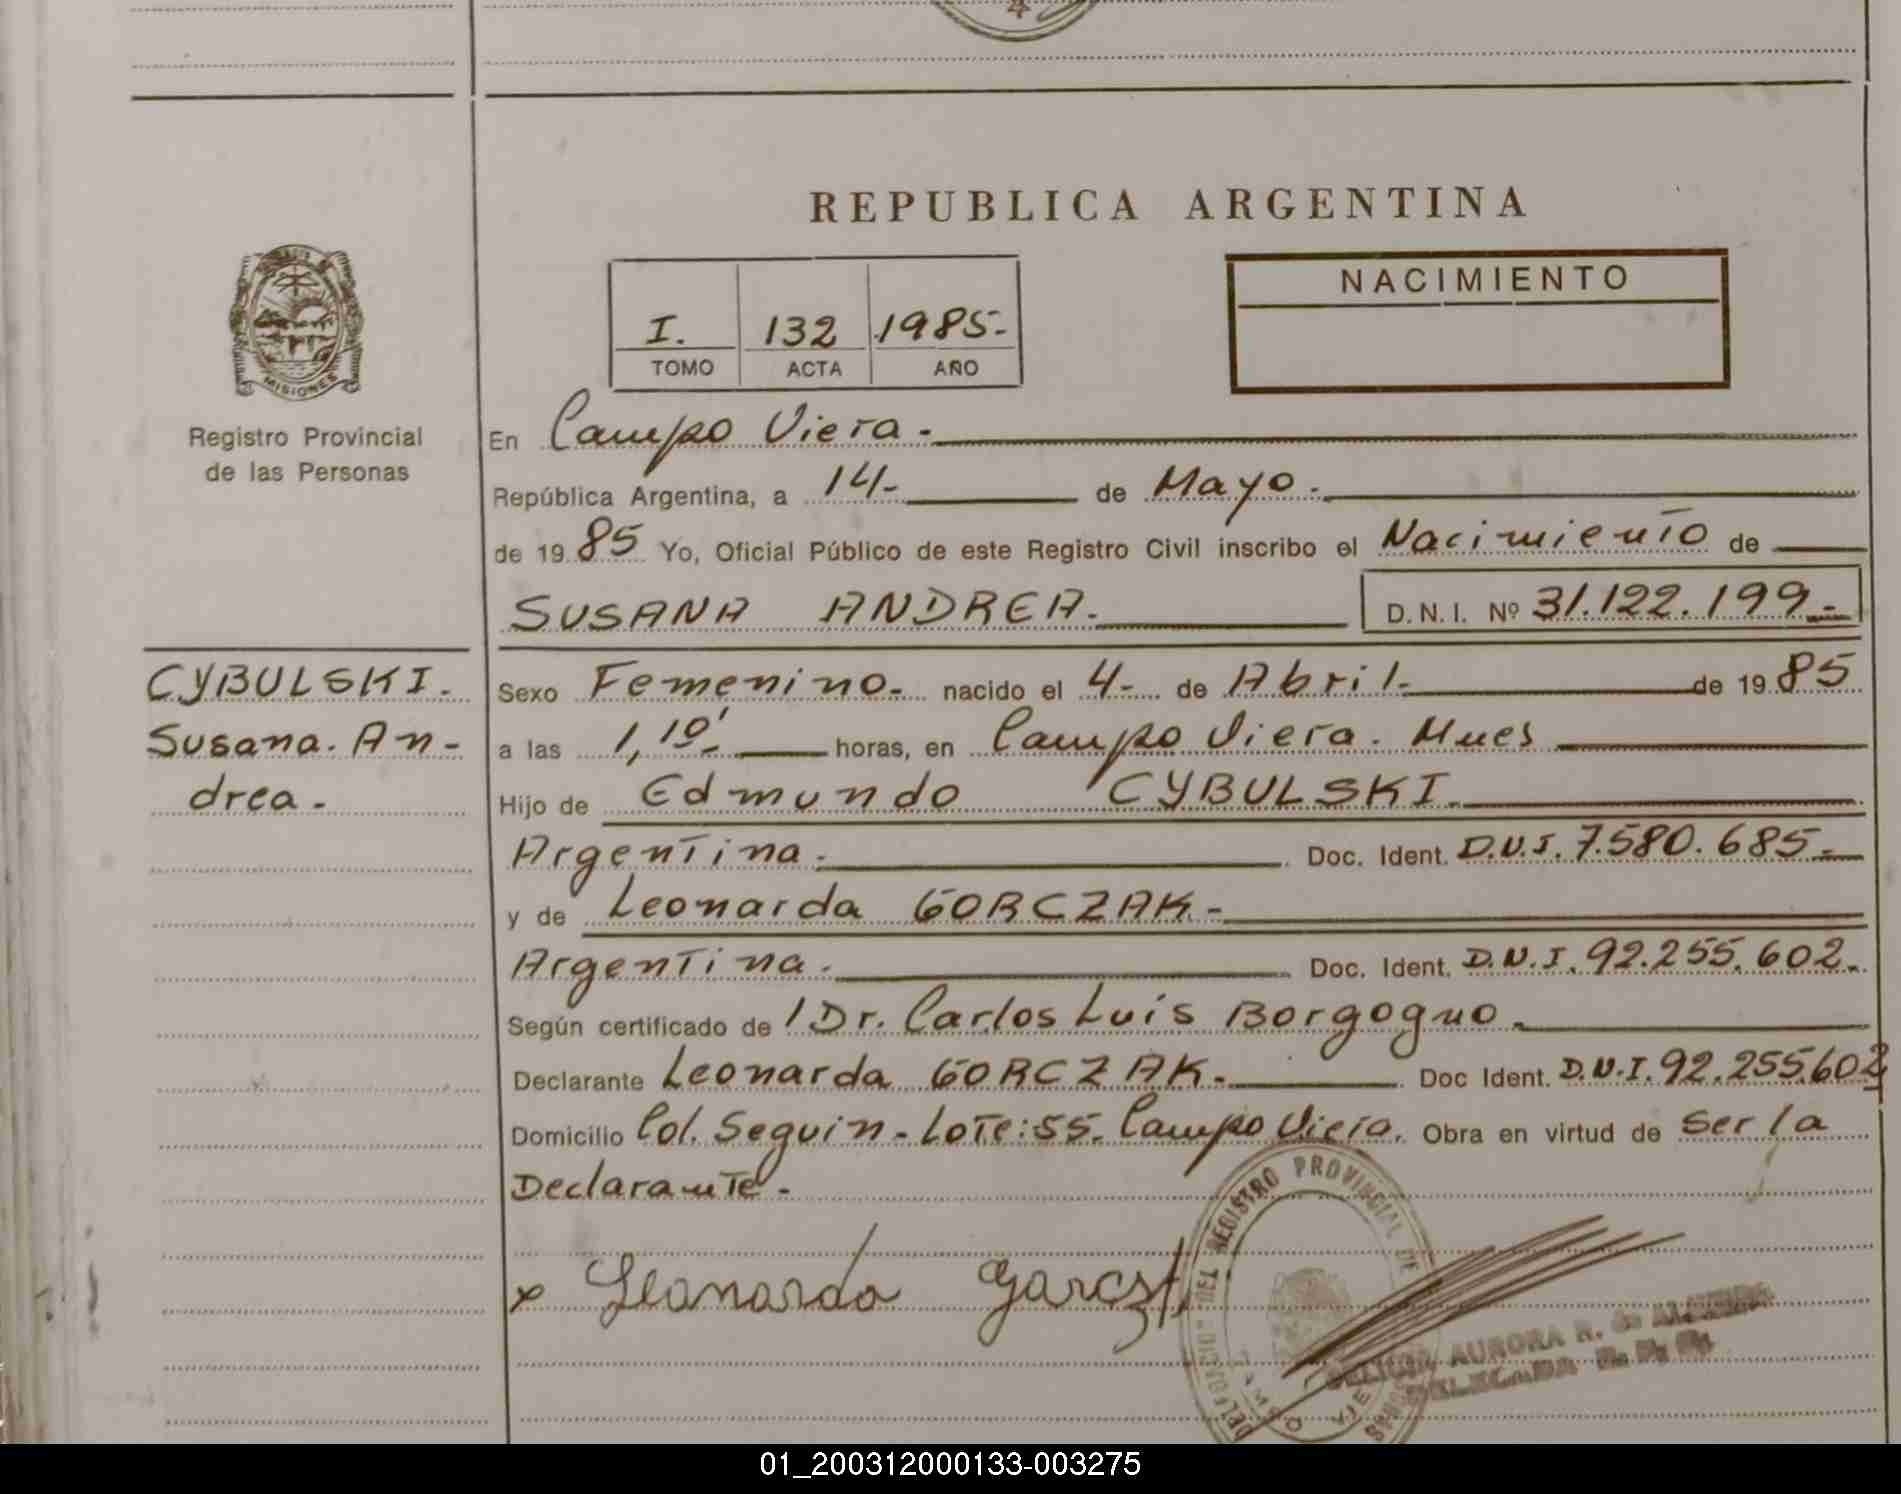 REPUBLICA ARGENTINA
MISIONES
Registro Provincial
de las Personas
I. 132 1985-
TOMO ACTA AÑO
NACIMIENTO
En Campo Viera.-
República Argentina, a 14- de Mayo.-
de 1985 Yo, Oficial Público de este Registro Civil inscribo el Nacimiento de
SUSANA ANDREA.- D.N.I. Nº 31.122.199.-
CYBULSKI.
Susana. An-
drea.-
Sexo Femenino.- nacido el 4- de Abril.- de 1985
a las 1,10' horas, en Campo Viera. Mnes
Hijo de Edmundo CYBULSKI.-
Argentina.- Doc. Ident. D.N.I. 7.580.685.-
y de Leonarda GORCZAK.-
Argentina.- Doc. Ident. D.N.I. 92.255.602.-
Según certificado de / Dr. Carlos Luis Borgogno.-
Declarante Leonarda GORCZAK.- Doc Ident. D.N.I. 92.255.602
Domicilio Col. Seguin-Lote:55. Campo Viera. Obra en virtud de ser la
Declarante.-
x Leonarda
REGISTRO PROVINCIAL DE
AURORA R. de
DELEGADA
01_200312000133-003275